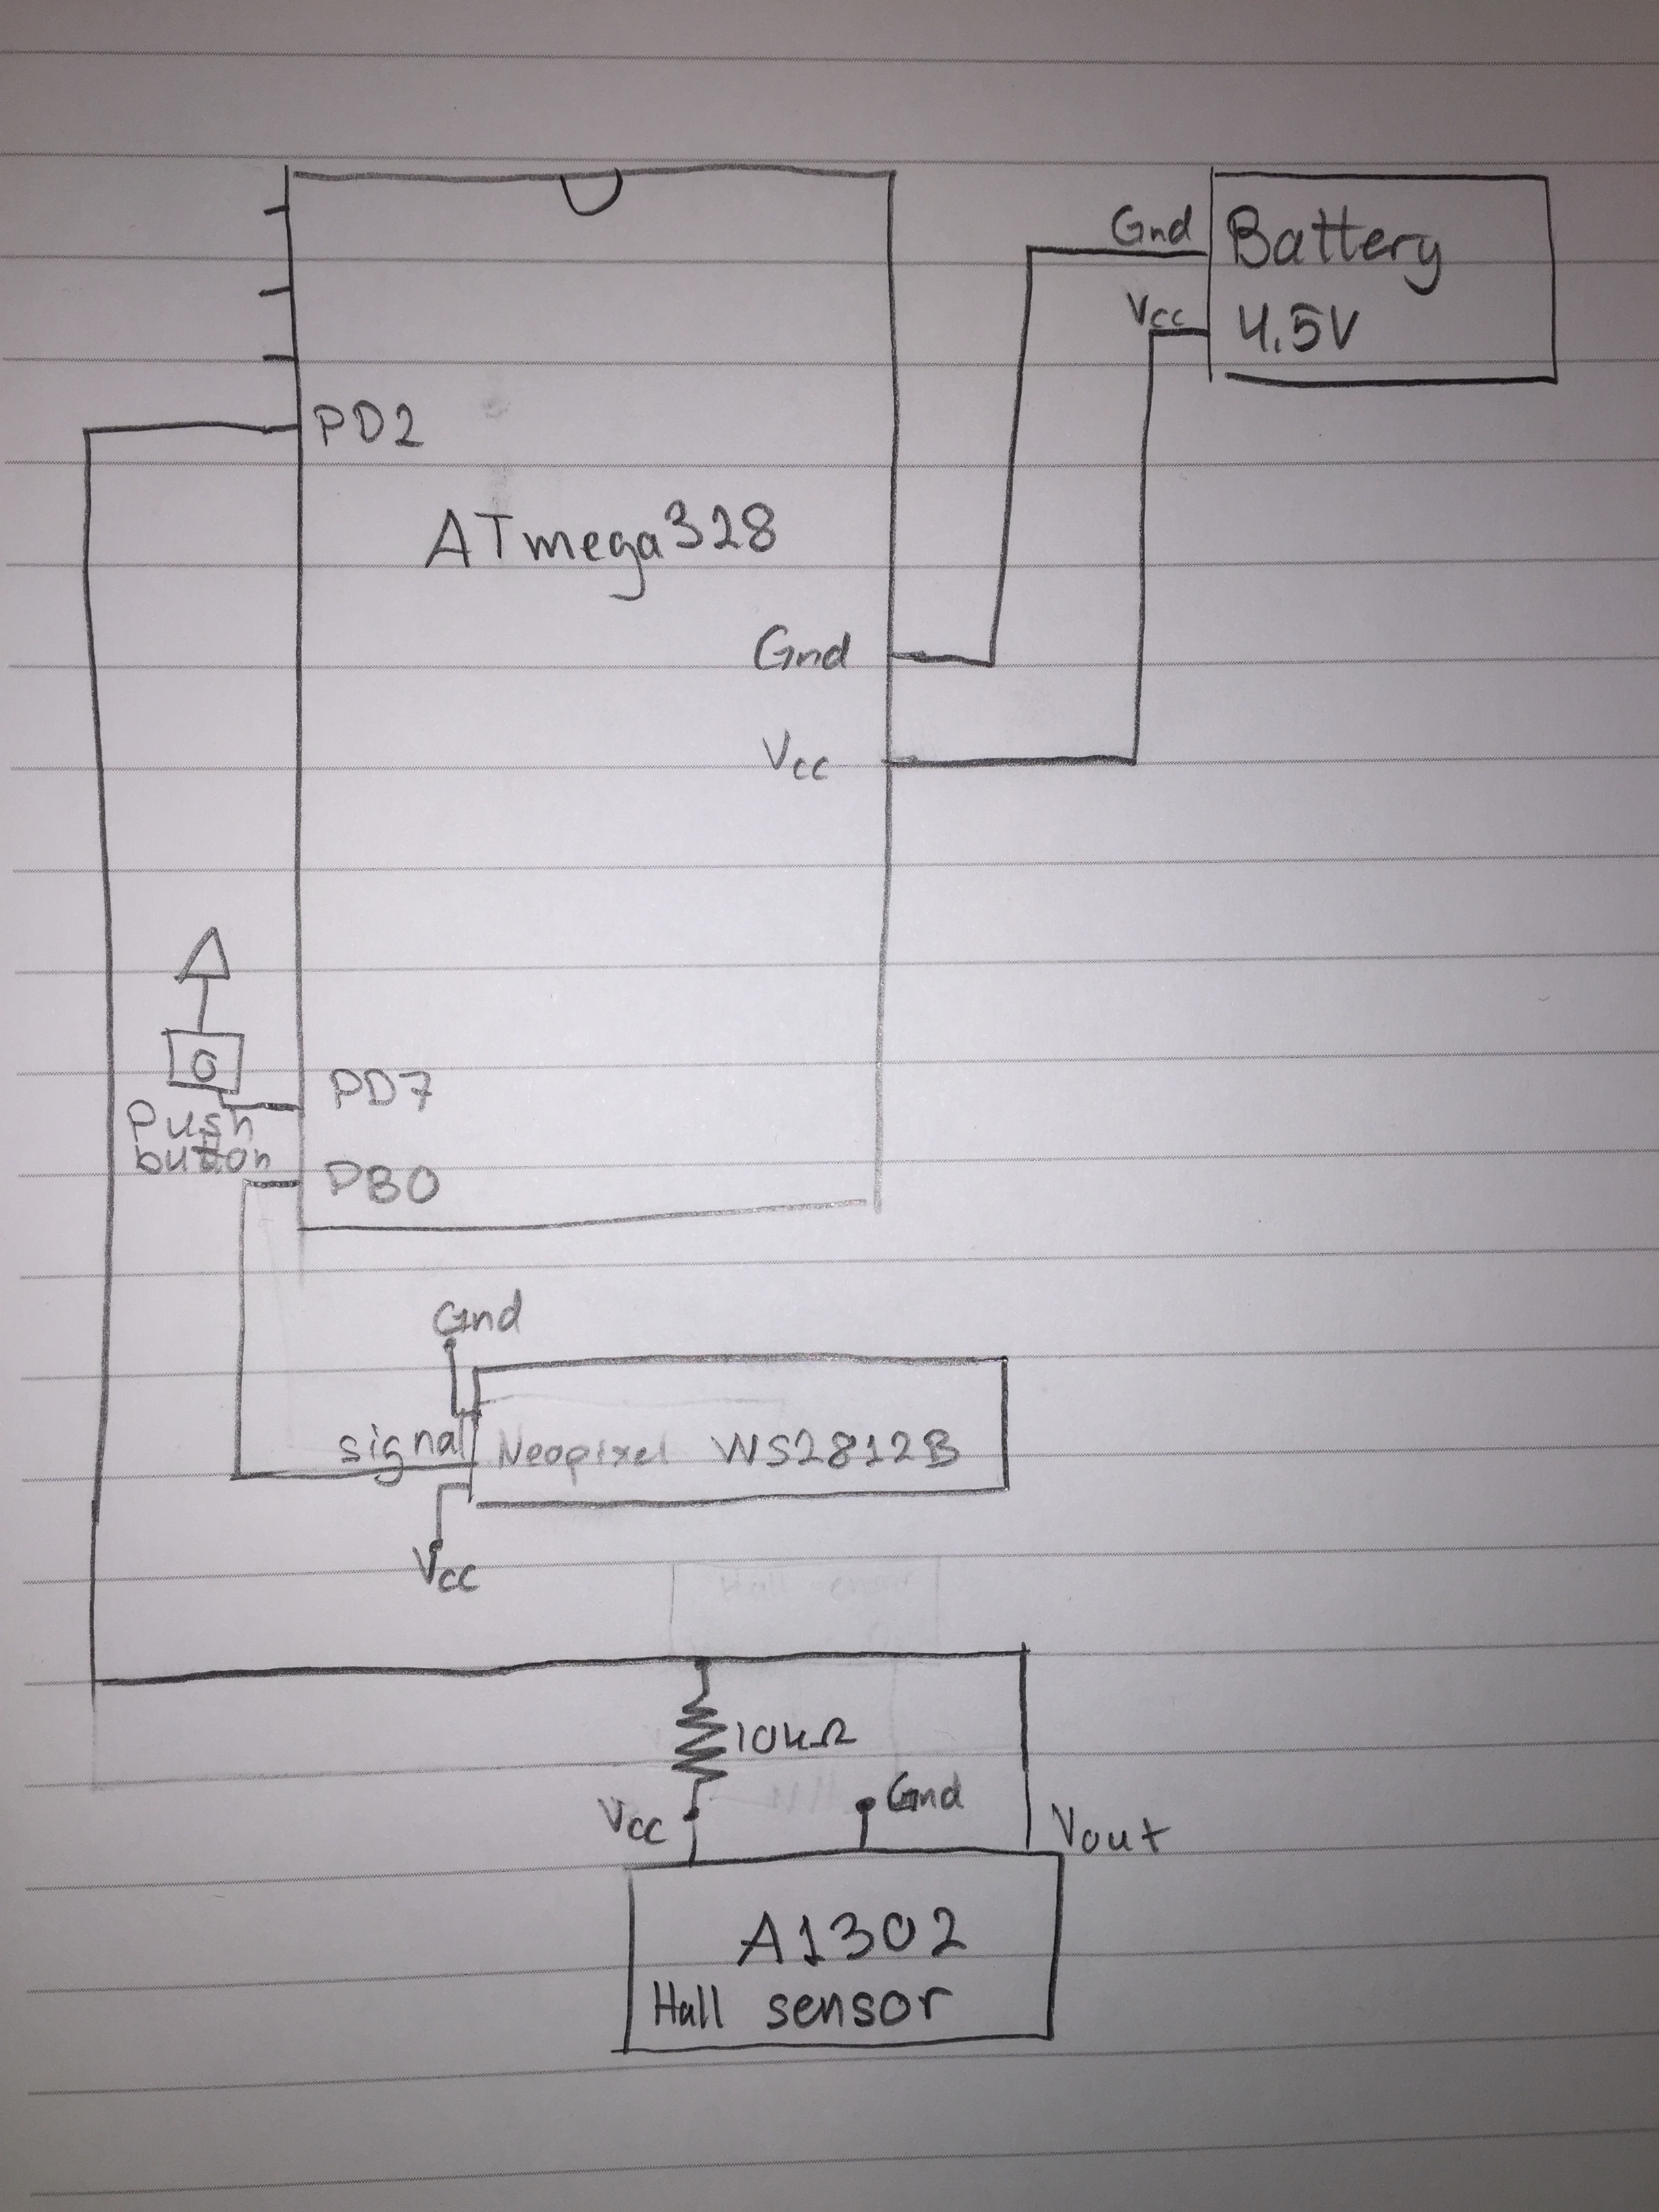 Gnd
Battery
Vcc
4.5V
PD2
ATmega328
Gnd
Vcc
PD7
Push
button
PB0
Gnd
signal
Neopixel WS2812B
Vcc
10kΩ
Vcc
Gnd
Vout
A1302
Hall sensor